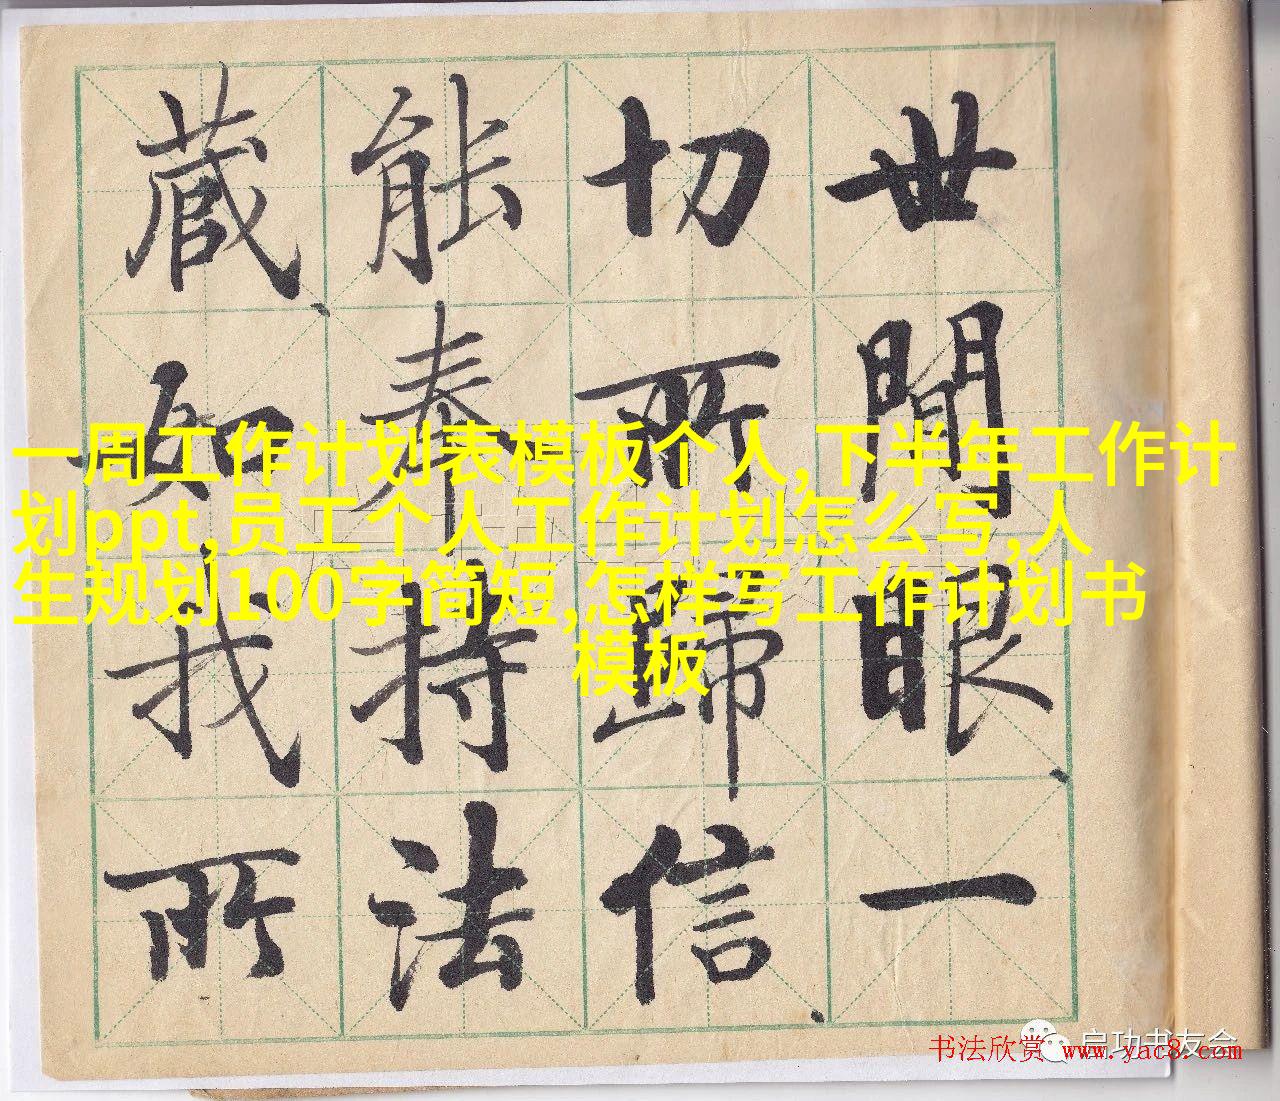 世間眼一
切所歸信
能奉持法
藏知我所
一周工作计划表模板个人,下半年工作计
划ppt,员工个人工作计划怎么写,人
生规划100字简短,怎样写工作计划书
模板
启功书友会
书法欣赏 www.yac8.com